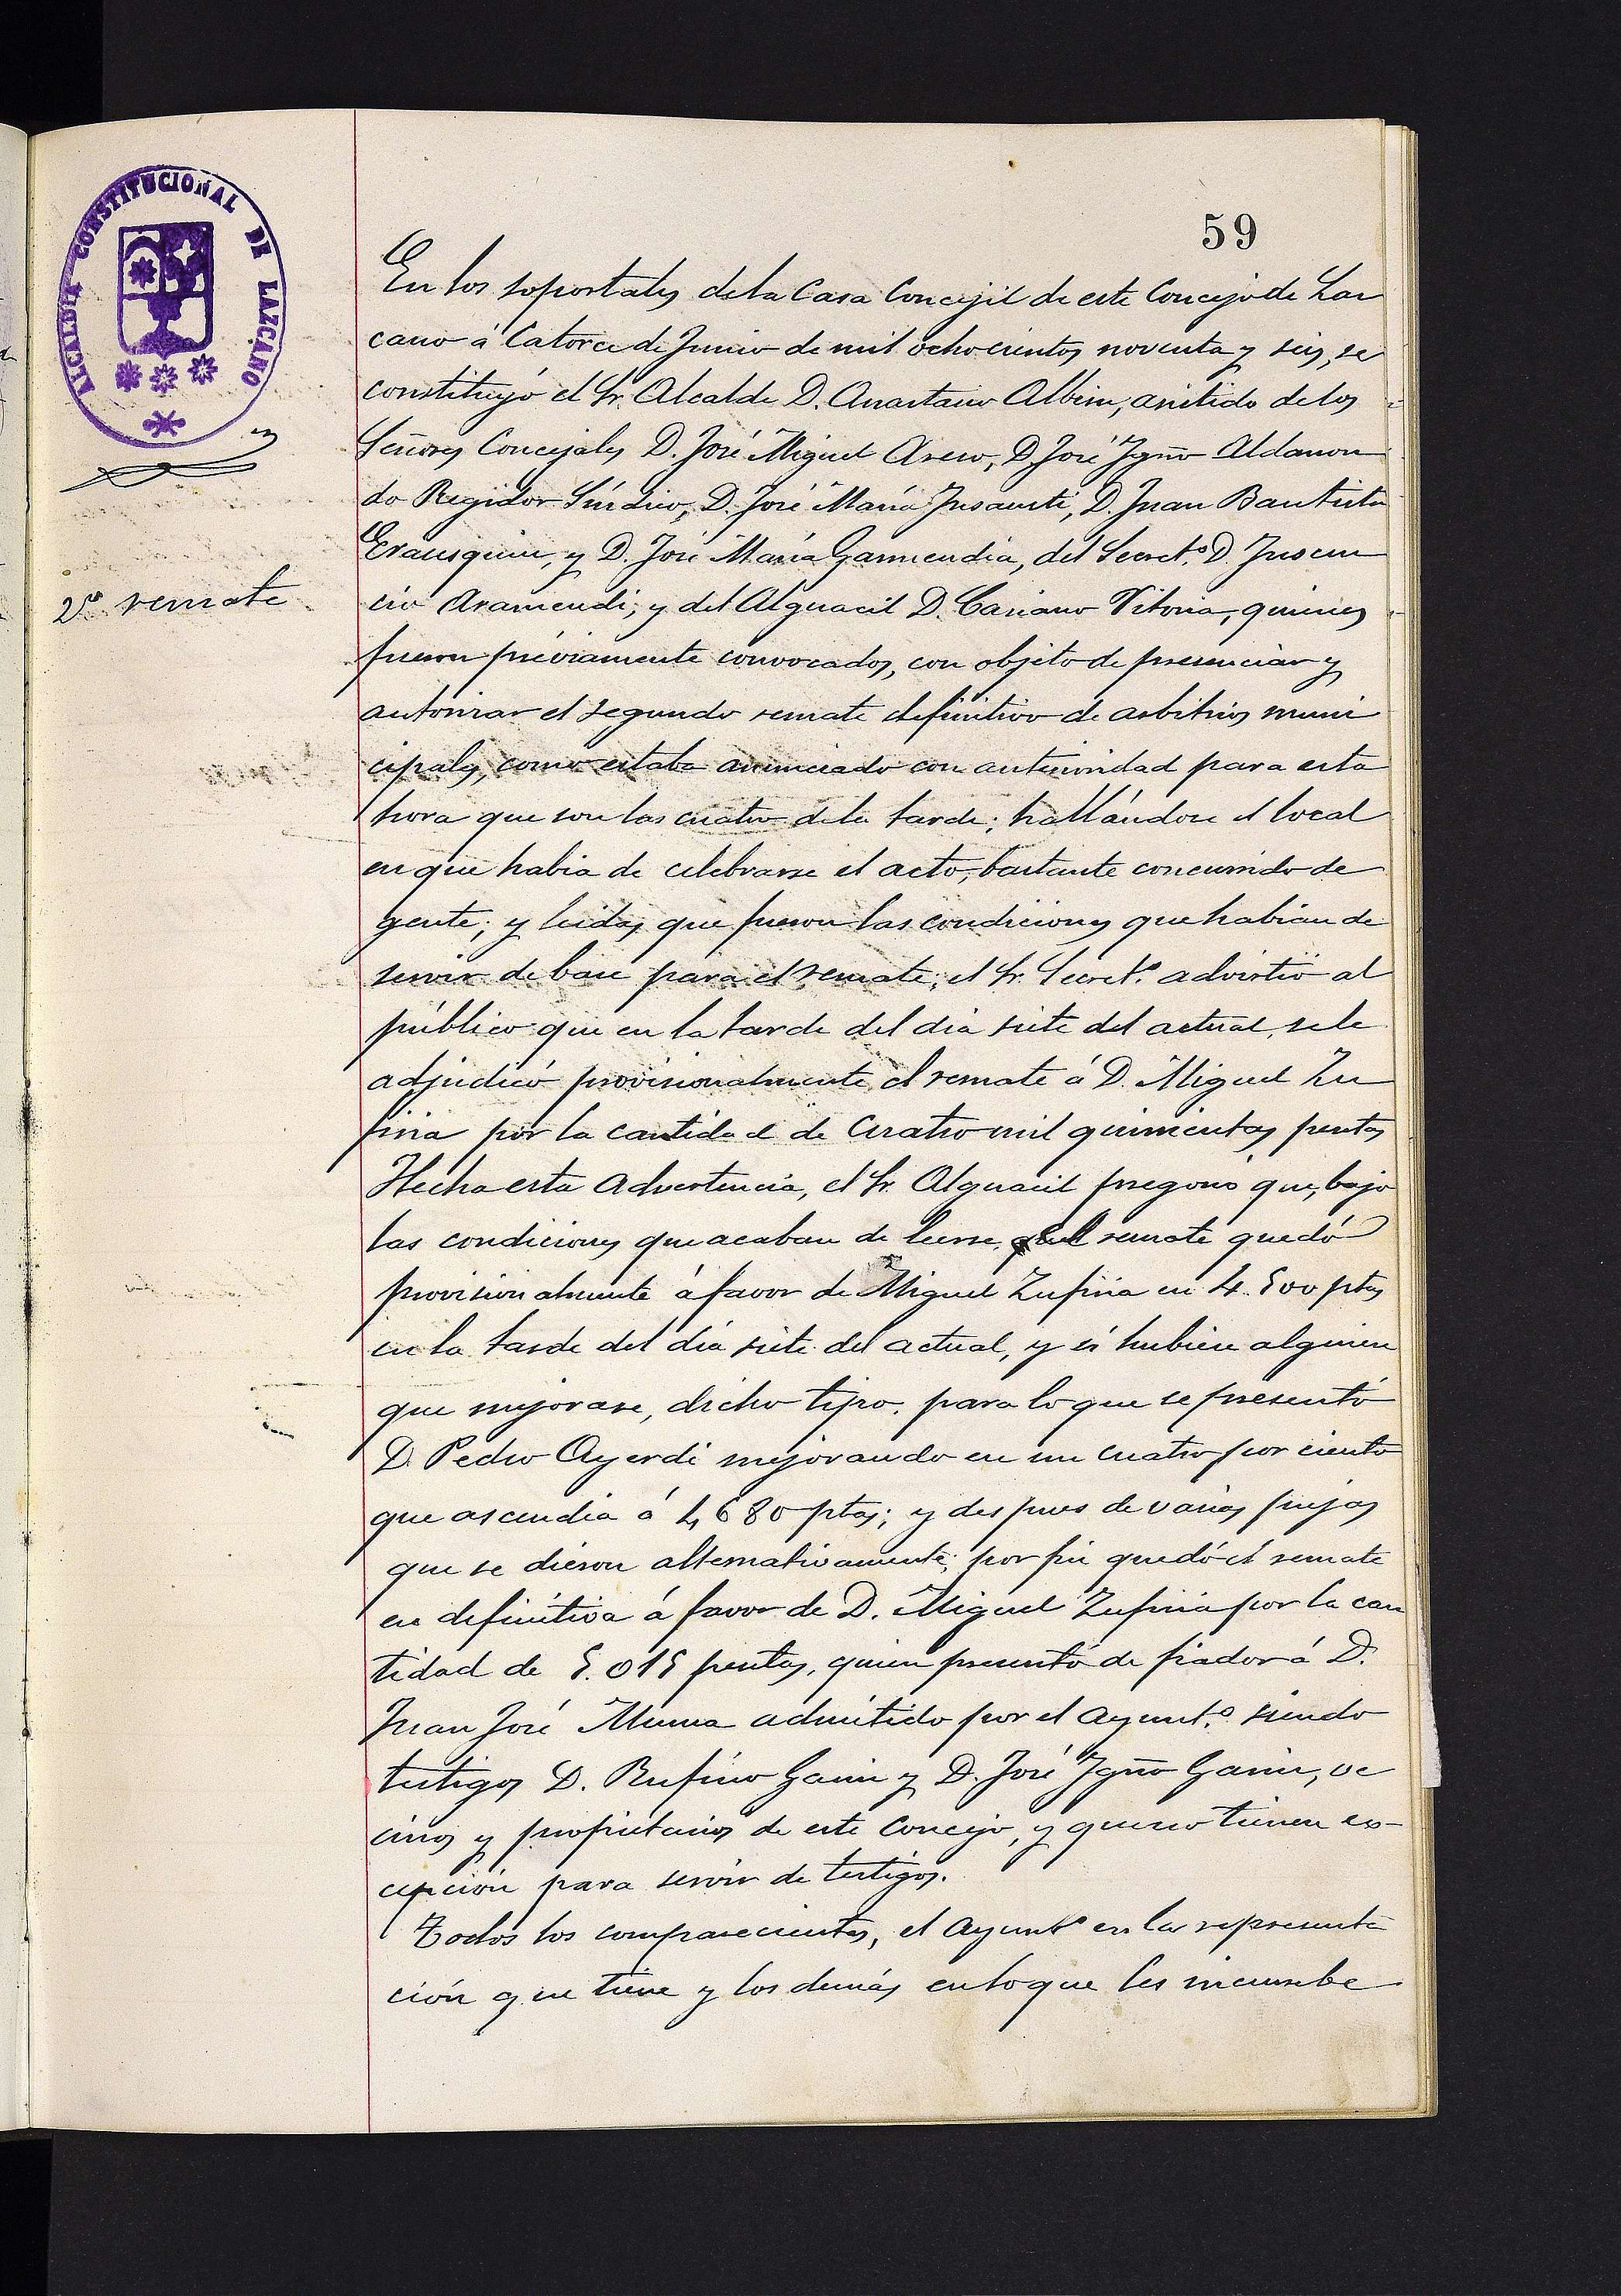 ALCALDIA CONSTITUCIONAL DE LAZCANO
59
2º remate
En los soportales de la Casa Concejil de este Concejo de Laz
cano á Catorce de Junio de mil ochocientos noventa y seis, se
constituyó el Sr. Alcalde D. Anastasio Albisu, asitido de los
Señores Concejales D. José Miguel Aseso, D. José Ygnº Aldason
do Regidor Síndico, D. José María Insausti, D. Juan Bautista
Erausquin, y D. José María Garmendia, del Secretº D. Inocen
cio Aramendi; y del Alguacil D. Casiano Vitoria, quienes
fueron préviamente convocados, con objeto de presenciar y
autorizar el segundo remate definitivo de arbitrios muni
cipales, como estaba anunciado con anterioridad para esta
hora que son las cuatro de la tarde; hallándose el local
en que habia de celebrarse el acto, bastante concurrido de
gente; y leidas que fueron las condiciones que habian de
servir de base para el remate; el Sr. Secretº advirtió al
público que en la tarde del dia siete del actual, se le
adjudicó provisionalmente el remate á D. Miguel Zu
firia por la cantidad de Cuatro mil quinientas pesetas
Hecha esta advertencia, el Sr. Alguacil pregonó que, bajo
las condiciones que acaban de leerse, el remate quedó
provisionalmente á favor de Miguel Zufiria en 4.500 ptas
en la tarde del día siete del actual, y si hubiese alguien
que mejorase, dicho tipo, para lo que se presentó
D. Pedro Ayerdi mejorando en un cuatro por ciento
que ascendia á 4680 ptas; y despues de varias pujas
que se dieron alternativamente; por fin quedó el remate
en definitiva á favor de D. Miguel Zufiria por la can
tidad de 5.015 pesetas, quien presentó de fiador á D.
Juan José Munoa admitido por el ayuntº siendo
testigos D. Rufino Garin y D. José Ygnº Garin, ve
cinos y propietarios de este Concejo, y que no tienen ex-
cepción para servir de testigos.
Todos los comparecientes, el ayuntº en la representa
ción que tiene y los demás en lo que les incumbe